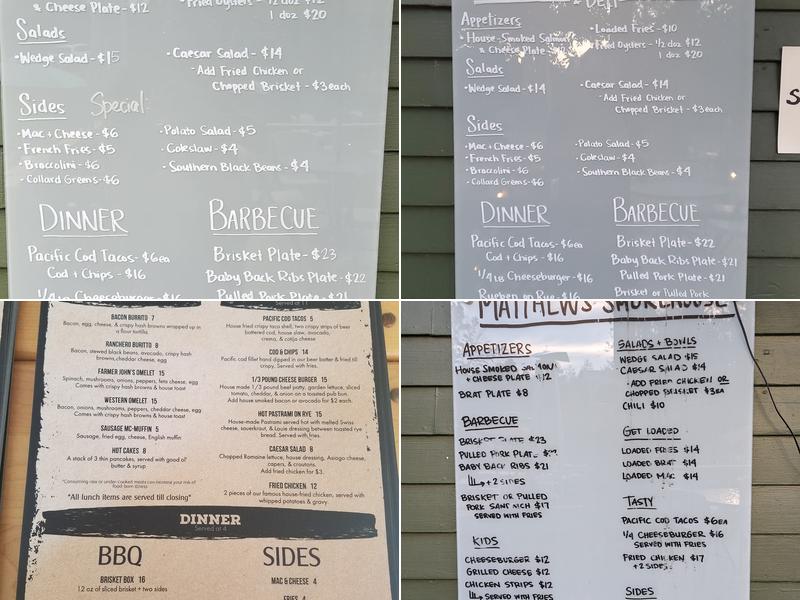 & Cheese Plate - $12
Fried Oysters - 1/2 doz $12
1 doz $20
Salads
• Wedge Salad - $15
• Caesar Salad - $14
- Add Fried Chicken or
Chopped Brisket - $3 each
Sides Special:
• Mac + Cheese - $6
• French Fries - $5
• Broccolini - $6
• Collard Greens - $6
• Potato Salad - $5
• Coleslaw - $4
• Southern Black Beans - $4
DINNER
Pacific Cod Tacos - $6ea
Cod + Chips - $16
1/4 lb Cheeseburger - $16
BARBECUE
Brisket Plate - $23
Baby Back Ribs Plate - $22
Pulled Pork Plate - $21
Appetizers
• House-Smoked Salmon
& Cheese Plate
• Loaded Fries - $10
Fried Oysters - 1/2 doz $12
1 doz $20
Salads
• Wedge Salad - $14
• Caesar Salad - $14
- Add Fried Chicken or
Chopped Brisket - $3 each
Sides
• Mac + Cheese - $6
• French Fries - $5
• Broccolini - $6
• Collard Greens - $6
• Potato Salad - $5
• Coleslaw - $4
• Southern Black Beans - $4
DINNER
Pacific Cod Tacos - $6ea
Cod + Chips - $16
1/4 lb Cheeseburger - $16
Rueben on Rye - $16
BARBECUE
Brisket Plate - $22
Baby Back Ribs Plate - $21
Pulled Pork Plate - $21
Brisket or Pulled Pork
S
BACON BURRITO 7
Bacon, egg, cheese, & crispy hash browns wrapped up in
a flour tortilla.
RANCHERO BURRITO 8
Bacon, stewed black beans, avocado, crispy hash
browns, cheddar cheese, egg
FARMER JOHN'S OMELET 15
Spinach, mushrooms, onions, peppers, feta cheese, egg
Comes with crispy hash browns & house toast
WESTERN OMELET 15
Bacon, onions, mushrooms, peppers, cheddar cheese, egg
Comes with crispy hash browns & house toast
SAUSAGE MC-MUFFIN 5
Sausage, fried egg, cheese, English muffin
HOT CAKES 8
A stack of 3 thin pancakes, served with good ol'
butter & syrup
*Consuming raw or under-cooked meats can increase your risk of
food-born illness
*All lunch items are served till closing*
Served at 11
PACIFIC COD TACOS 5
House fried crispy taco shell, two crispy strips of beer
battered cod, house slaw, avocado,
crema, & cotija cheese
COD & CHIPS 14
Pacific cod fillet hand dipped in our beer batter & fried till
crispy. Served with fries.
1/3 POUND CHEESE BURGER 15
House made 1/3 pound beef patty, garden lettuce, sliced
tomato, cheddar, & onion on a toasted pub bun.
Add house smoked bacon or avocado for $2 each.
HOT PASTRAMI ON RYE 15
House-made Pastrami served hot with melted Swiss
cheese, sauerkraut, & Louie dressing between toasted rye
bread. Served with fries.
CAESAR SALAD 8
Chopped Romaine lettuce, house dressing, Asiago cheese,
capers, & croutons.
Add fried chicken for $3.
FRIED CHICKEN 12
2 pieces of our famous house-fried chicken, served with
whipped potatoes & gravy.
DINNER
Served at 4
BBQ
BRISKET BOX 16
12 oz of sliced brisket + two sides
SIDES
MAC & CHEESE 4
FRIES 4
MATTHEWS SMOKEHOUSE
APPETIZERS
HOUSE SMOKED SALMON
+ CHEESE PLATE $12
BRAT PLATE $8
BARBECUE
BRISKET PLATE $23
PULLED PORK PLATE
BABY BACK RIBS $21
+ 2 SIDES
BRISKET OR PULLED
PORK SANDWICH $17
SERVED WITH FRIES
KIDS
CHEESEBURGER $12
GRILLED CHEESE $12
CHICKEN STRIPS $12
SERVED WITH FRIES
SALADS + BOWLS
WEDGE SALAD $15
CAESAR SALAD $14
- ADD FRIED CHICKEN OR
CHOPPED BRISKET $3EA
CHILI $10
GET LOADED
LOADED FRIES $14
LOADED BRAT $14
LOADED MAC $14
TASTY
PACIFIC COD TACOS $6EA
1/4 CHEESEBURGER $16
SERVED WITH FRIES
FRIED CHICKEN $17
+ 2 SIDES
SIDES